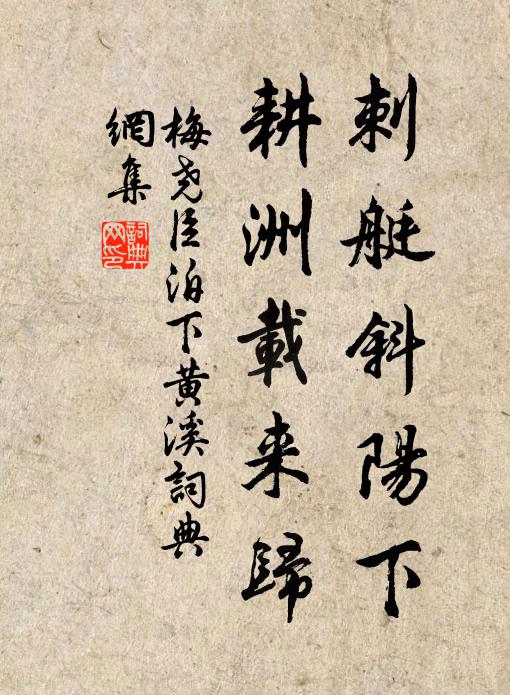 刺艇斜陽下
耕洲載来歸
梅尧臣泊下黄溪詞典
網集
詞典
网印